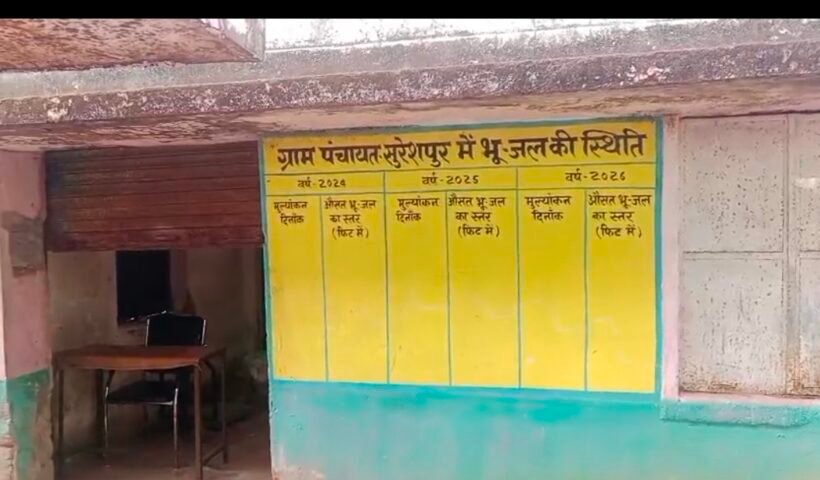 ग्राम पंचायत-सुरेशपुर में भू-जल की स्थिति
वर्ष-2024 वर्ष-2025 वर्ष-2026
मुल्यांकन औसत भू-जल मुल्यांकन औसत भू-जल मुल्यांकन औसत भू-जल
दिनाँक का स्तर दिनाँक का स्तर दिनाँक का स्तर
(फिट में) (फिट में) (फिट में)